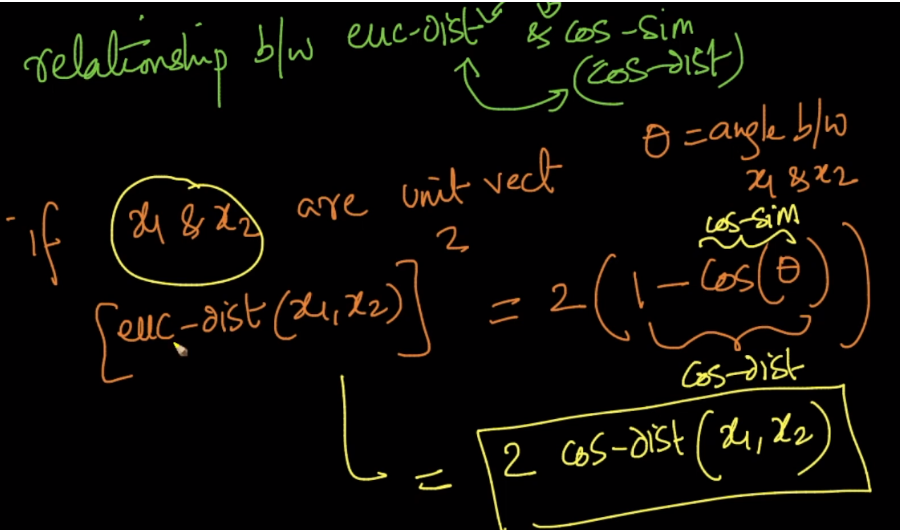 relationship b/w euc-dist & cos-sim
(cos-dist)
θ = angle b/w
x1 & x2
if x1 & x2 are unit vect
cos-sim
[euc-dist(x1, x2)]² = 2(1 - cos(θ))
cos-dist
= 2 cos-dist(x1, x2)